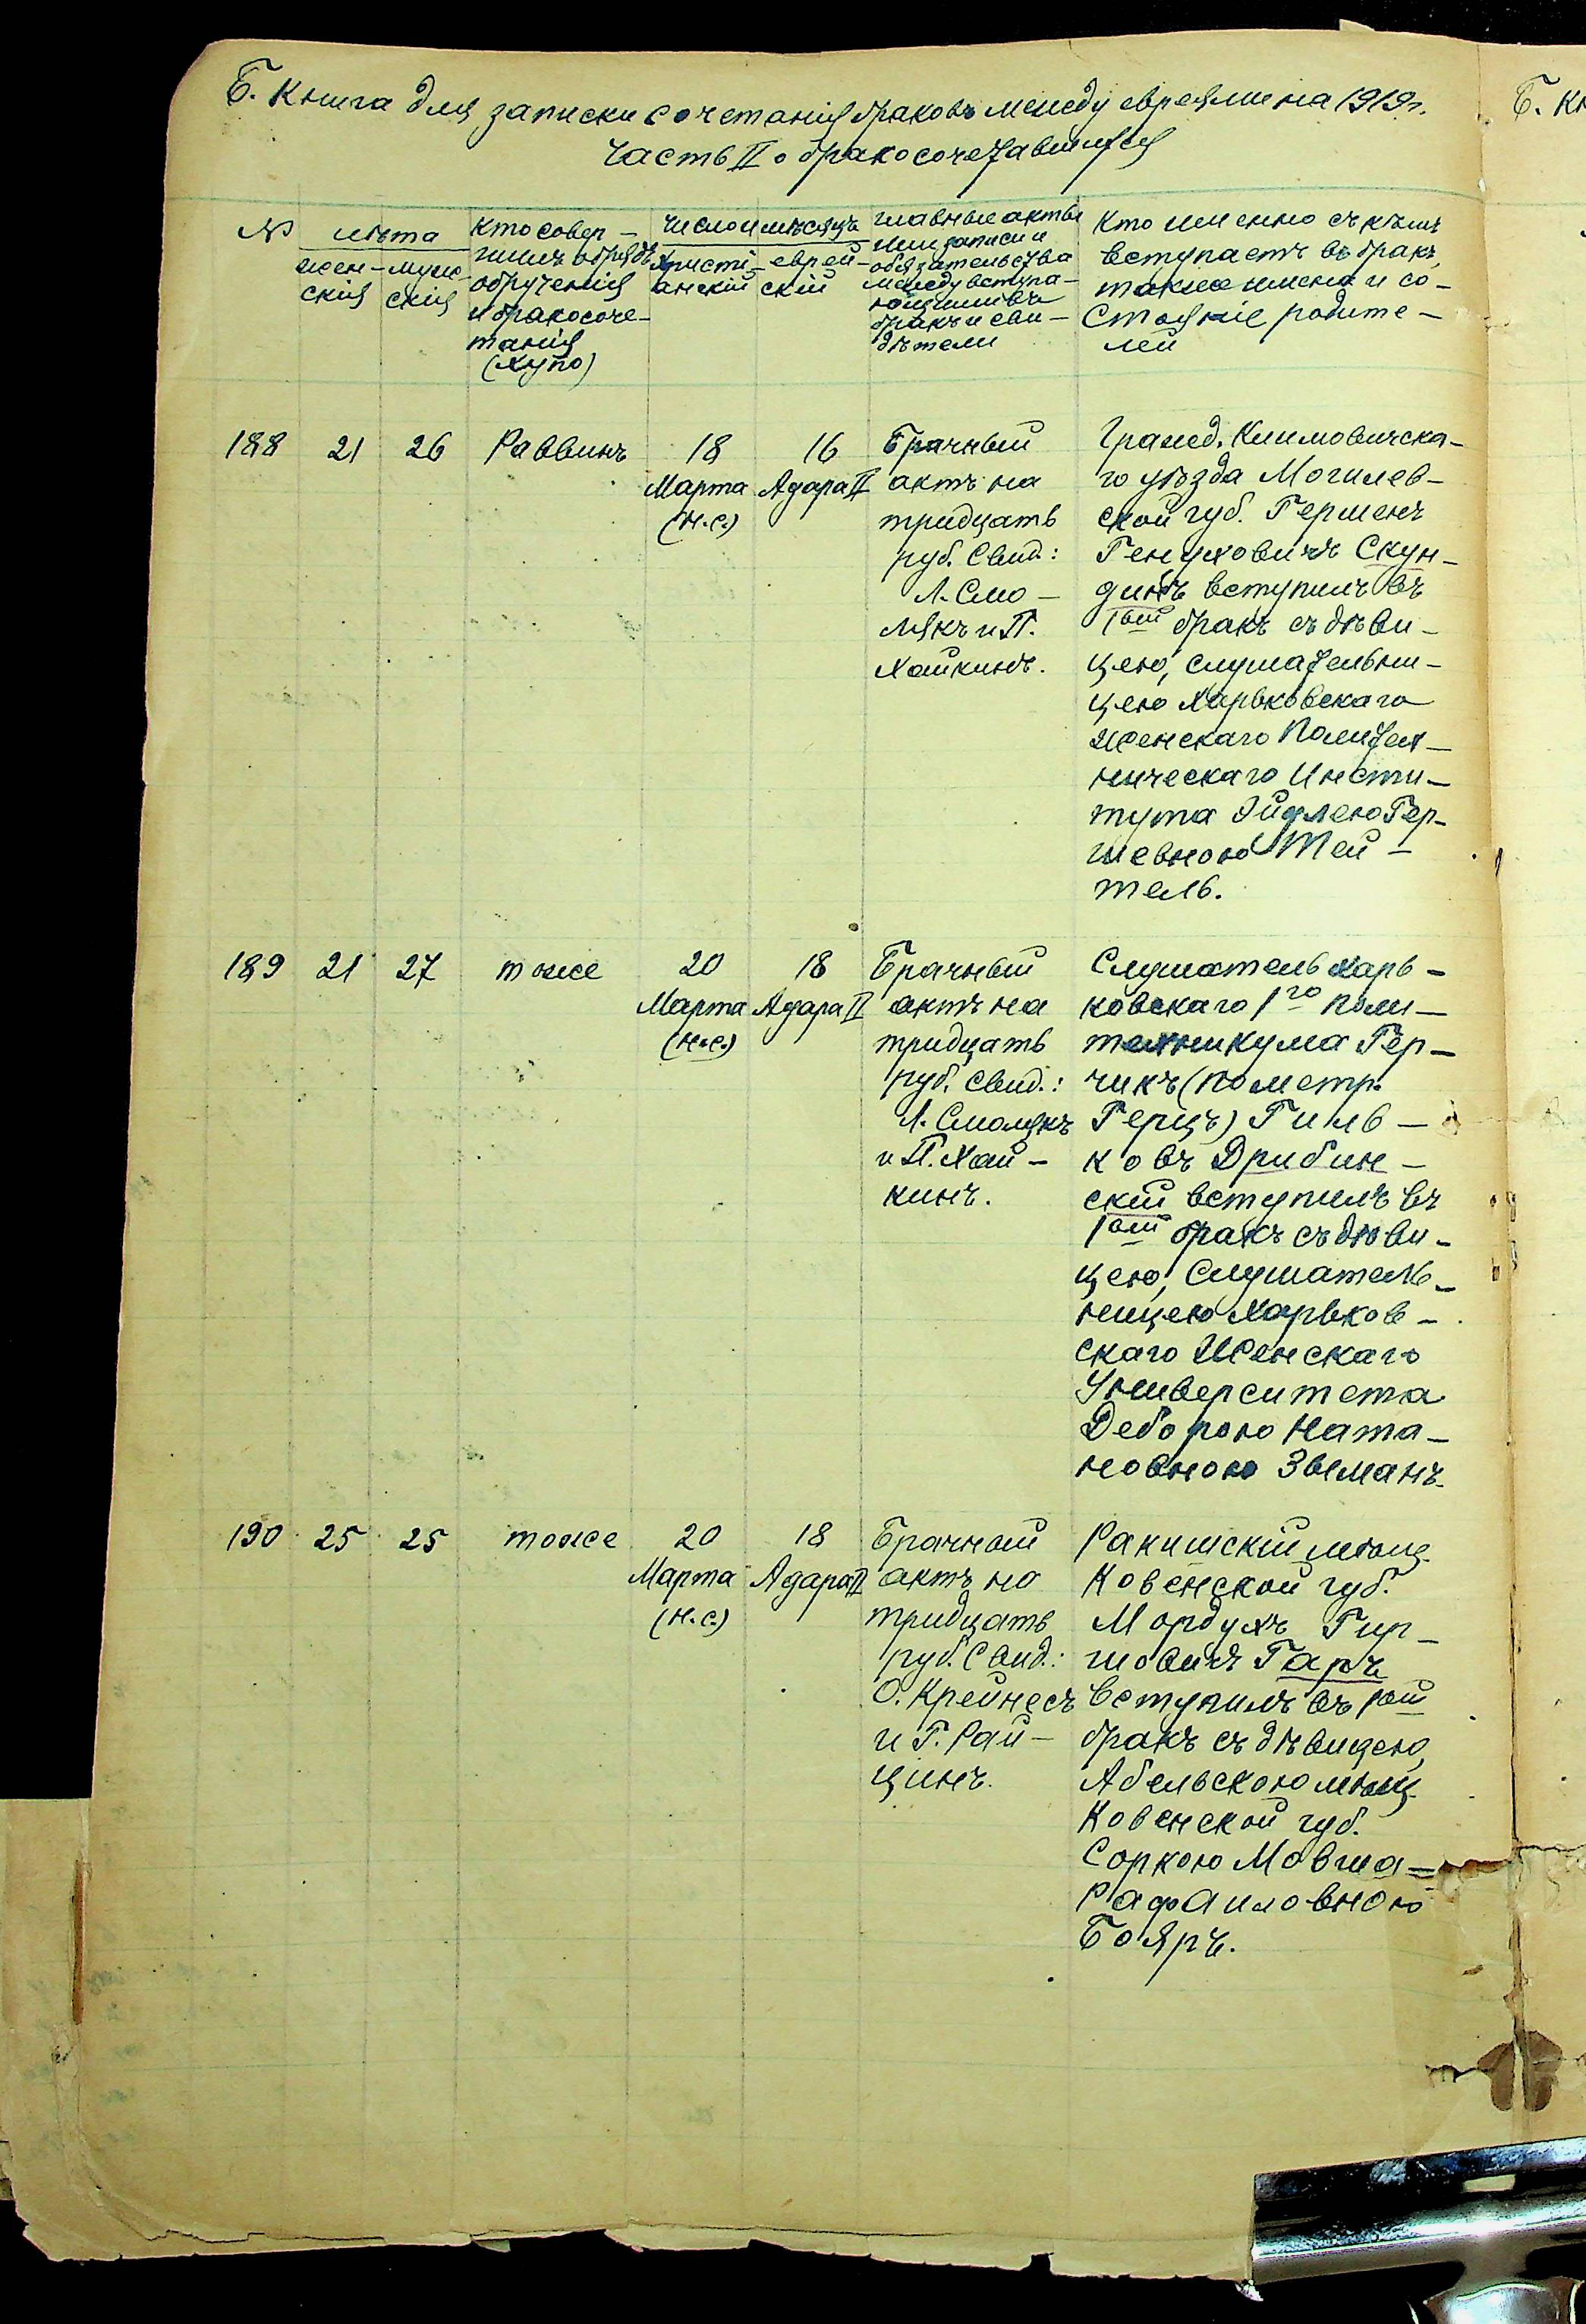 Б. Книга для записки сочетанія браковъ между евреями на 1919 г.
Часть II о бракосочетавшихся
№
лѣта
жен-
скія
муж-
скія
Кто совер-
шилъ обрядъ
обрученія
и бракосоче-
танія
(Хупо)
Число и мѣсяцъ
Христі-
анскій
еврей-
скій
Главные акты
или записи и
обязательства
между вступа-
ющими въ
бракъ и сви-
дѣтели
Кто именно съ кѣмъ
вступаетъ въ бракъ,
также имена и со-
стояніе родите-
лей
188
21
26
Раввинъ
18
Марта
(н.с.)
16
Адара II
Брачный
актъ на
тридцать
руб. Свид.:
Л. Смо-
лякъ и П.
Хайкинъ.
Гражд. Климовичска-
го уѣзда Могилев-
ской губ. Гершенъ
Генуховичъ Скун-
динъ вступилъ въ
1ый бракъ съ дѣви-
цею, слушательни-
цею Харьковскаго
Женскаго Политех-
ническаго Инсти-
тута Эйдлею Гер-
шевною Тей-
тель.
189
21
27
тоже
20
Марта
(н.с.)
18
Адара II
Брачный
актъ на
тридцать
руб. Свид.:
Л. Смолякъ
и П. Хай-
кинъ.
Слушатель Харь-
ковскаго 1го Поли-
техникума Гер-
чикъ (по метр.
Герцъ) Гиль-
ковъ Дрибин-
скій вступилъ въ
1ый бракъ съ дѣви-
цею, слушатель-
ницею Харьков-
скаго Женскаго
Университета
Деборою Ната-
новною Зыманъ.
190
25
25
тоже
20
Марта
(н.с.)
18
Адара II
Брачный
актъ на
тридцать
руб. Свид.:
О. Крейнесъ
и Г. Рай-
цинъ.
Ракишскій мѣщ.
Ковенской губ.
Мордухъ Гир-
шовичъ Гаръ
вступилъ въ 1ый
бракъ съ дѣвицею,
Абельскою мѣщ.
Ковенской губ.
Соркою Мовша=
Рафаиловною
Бояръ.
Б. Кн